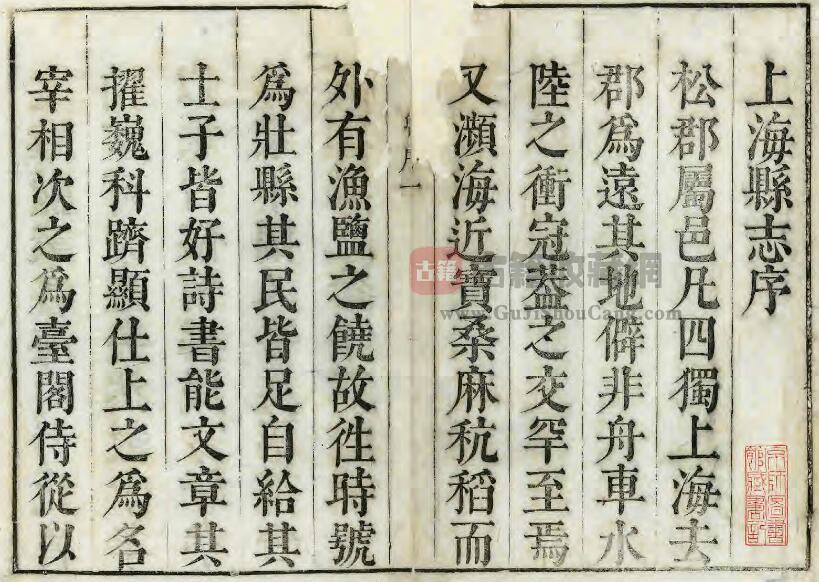 上海縣志序
松郡屬邑凡四獨上海去
郡爲遠其地僻非舟車水
陸之衝冠葢之交罕至焉
又瀕海近寶桑麻秔稻而
序一
外有漁鹽之饒故徃時號
爲壯縣其民皆足自給其
士子皆好詩書能文章其
擢巍科躋顯仕上之爲名
宰相次之爲臺閣侍從以
古籍
www.GuJiShouCang.com